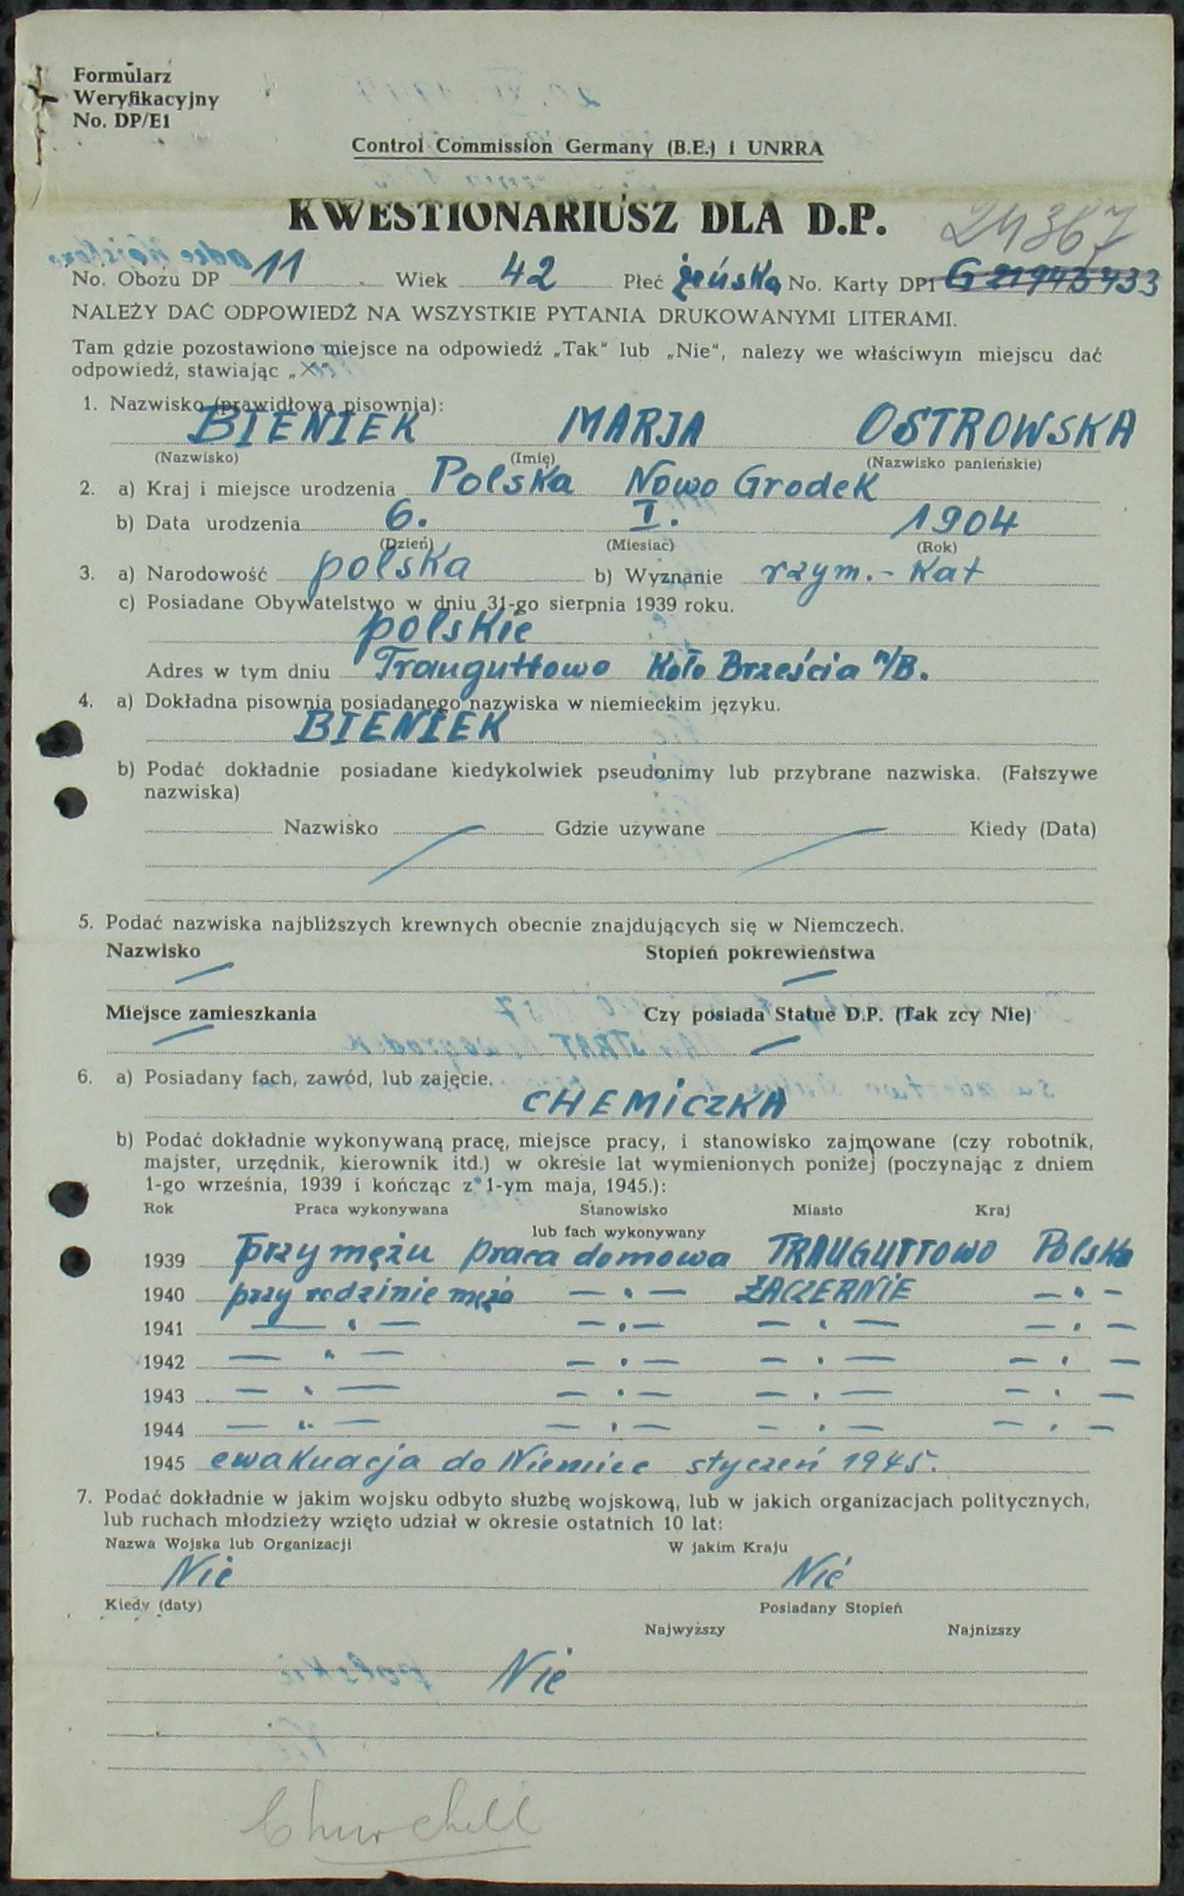 Formularz
Weryfikacyjny
No. DP/E1
Control Commission Germany (B.E.) i UNRRA
KWESTIONARIUSZ DLA D.P.
24367
No. Obozu DP 11 Wiek 42 Płeć żeńska No. Karty DP1 G
NALEŻY DAĆ ODPOWIEDŹ NA WSZYSTKIE PYTANIA DRUKOWANYMI LITERAMI.
Tam gdzie pozostawiono miejsce na odpowiedź „Tak" lub „Nie", nalezy we właściwym miejscu dać
odpowiedź, stawiając „X"
1. Nazwisko (prawidłowa pisownia):
BIENIEK MARJA OSTROWSKA
(Nazwisko) (Imię) (Nazwisko panieńskie)
2. a) Kraj i miejsce urodzenia Polska Nowo Grodek
b) Data urodzenia 6. I. 1904
(Dzień) (Miesiąc) (Rok)
3. a) Narodowość polska b) Wyznanie rzym.- Kat
c) Posiadane Obywatelstwo w dniu 31-go sierpnia 1939 roku.
polskie
Adres w tym dniu Trauguttowo Koło Brześcia n/B.
4. a) Dokładna pisownia posiadanego nazwiska w niemieckim języku.
BIENIEK
b) Podać dokładnie posiadane kiedykolwiek pseudonimy lub przybrane nazwiska. (Fałszywe
nazwiska)
Nazwisko Gdzie używane Kiedy (Data)
5. Podać nazwiska najbliższych krewnych obecnie znajdujących się w Niemczech.
Nazwisko Stopień pokrewieństwa
Miejsce zamieszkania Czy posiada Statue D.P. (Tak zcy Nie)
6. a) Posiadany fach, zawód, lub zajęcie.
CHEMiCZKA
b) Podać dokładnie wykonywaną pracę, miejsce pracy, i stanowisko zajmowane (czy robotnik,
majster, urzędnik, kierownik itd.) w okresie lat wymienionych poniżej (poczynając z dniem
1-go września, 1939 i kończąc z 1-ym maja, 1945.):
Rok Praca wykonywana Stanowisko Miasto Kraj
lub fach wykonywany
1939 przy mężu praca domowa TRAUGUTTOWO Polska
1940 przy rodzinie męża — . — ZACZERNIE — . —
1941 — . — — . — — . — — . —
1942 — . — — . — — . — — . —
1943 — . — — . — — . — — . —
1944 — . — — . — — . — — . —
1945 ewakuacja do Niemiec styczeń 1945.
7. Podać dokładnie w jakim wojsku odbyto służbę wojskową, lub w jakich organizacjach politycznych,
lub ruchach młodzieży wzięto udział w okresie ostatnich 10 lat:
Nazwa Wojska lub Organizacji W jakim Kraju
Nie Nie
Kiedy (daty) Posiadany Stopień
Najwyższy Najnizszy
Nie
Churchell